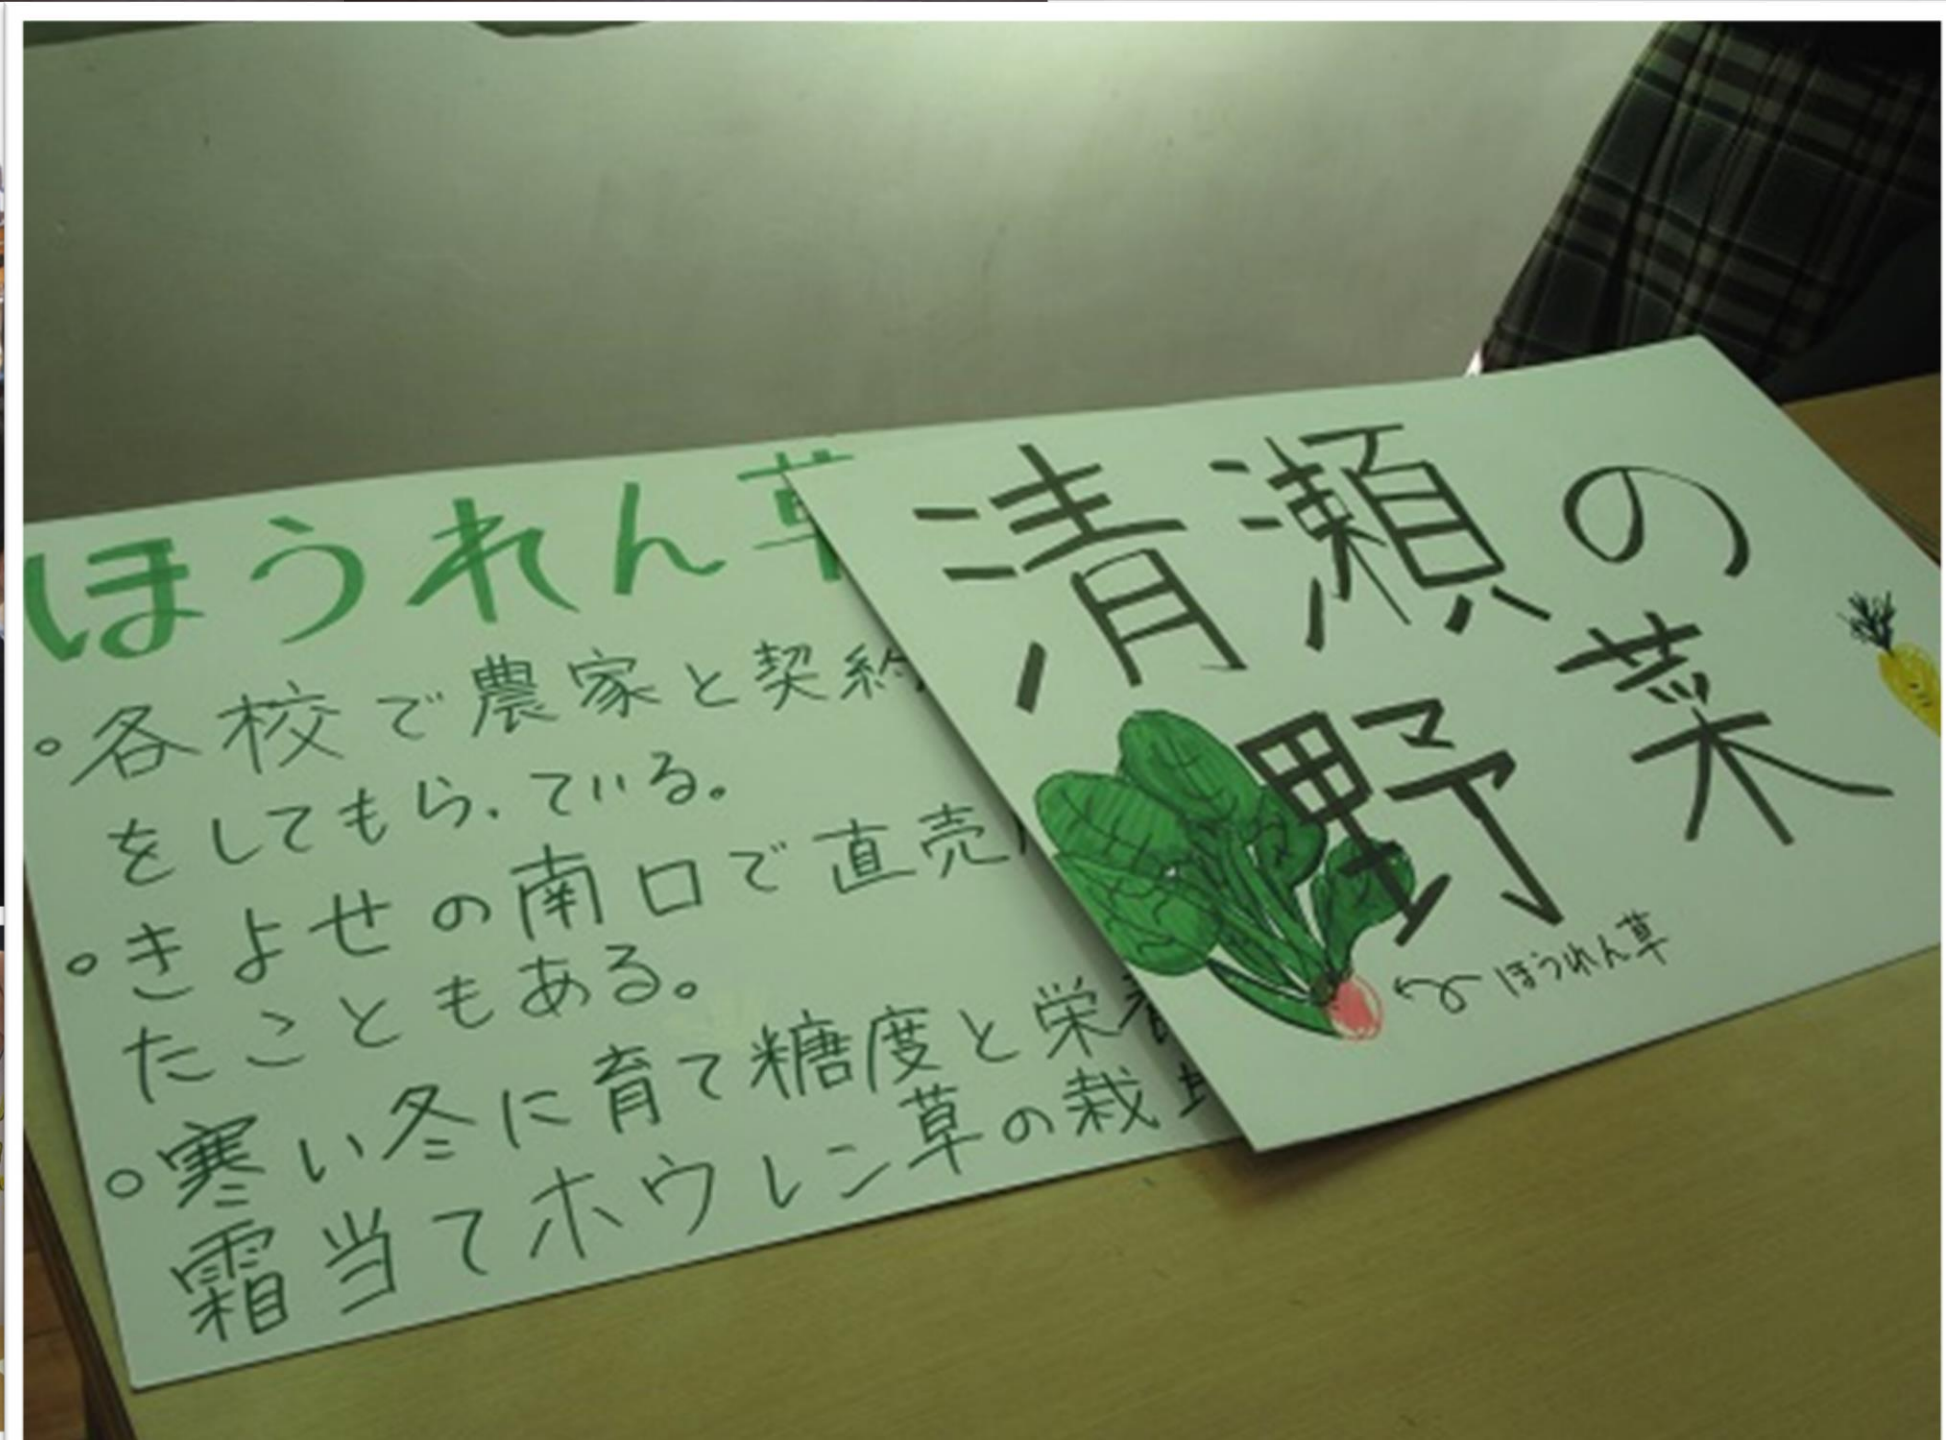 ほうれん草
。各校で農家と契約
をしてもらっている。
。きよせの南口で直売
たこともある。
。寒い冬に育て糖度と栄養
霜当てホウレン草の栽
清瀬の
野菜
ほうれん草